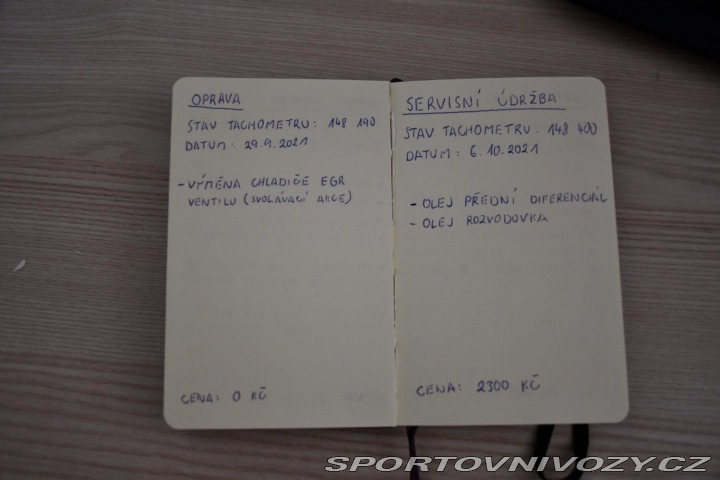 OPRAVA
STAV TACHOMETRU: 148 190
DATUM: 29.9.2021
- VÝMĚNA CHLADIČE EGR
VENTILU (SVOLÁVACÍ AKCE)
CENA: 0 KČ
SERVISNÍ ÚDRŽBA
STAV TACHOMETRU: 148 400
DATUM: 6.10.2021
- OLEJ PŘEDNÍ DIFERENCIÁL
- OLEJ ROZVODOVKA
CENA: 2300 KČ
SPORTOVNIVOZY.CZ